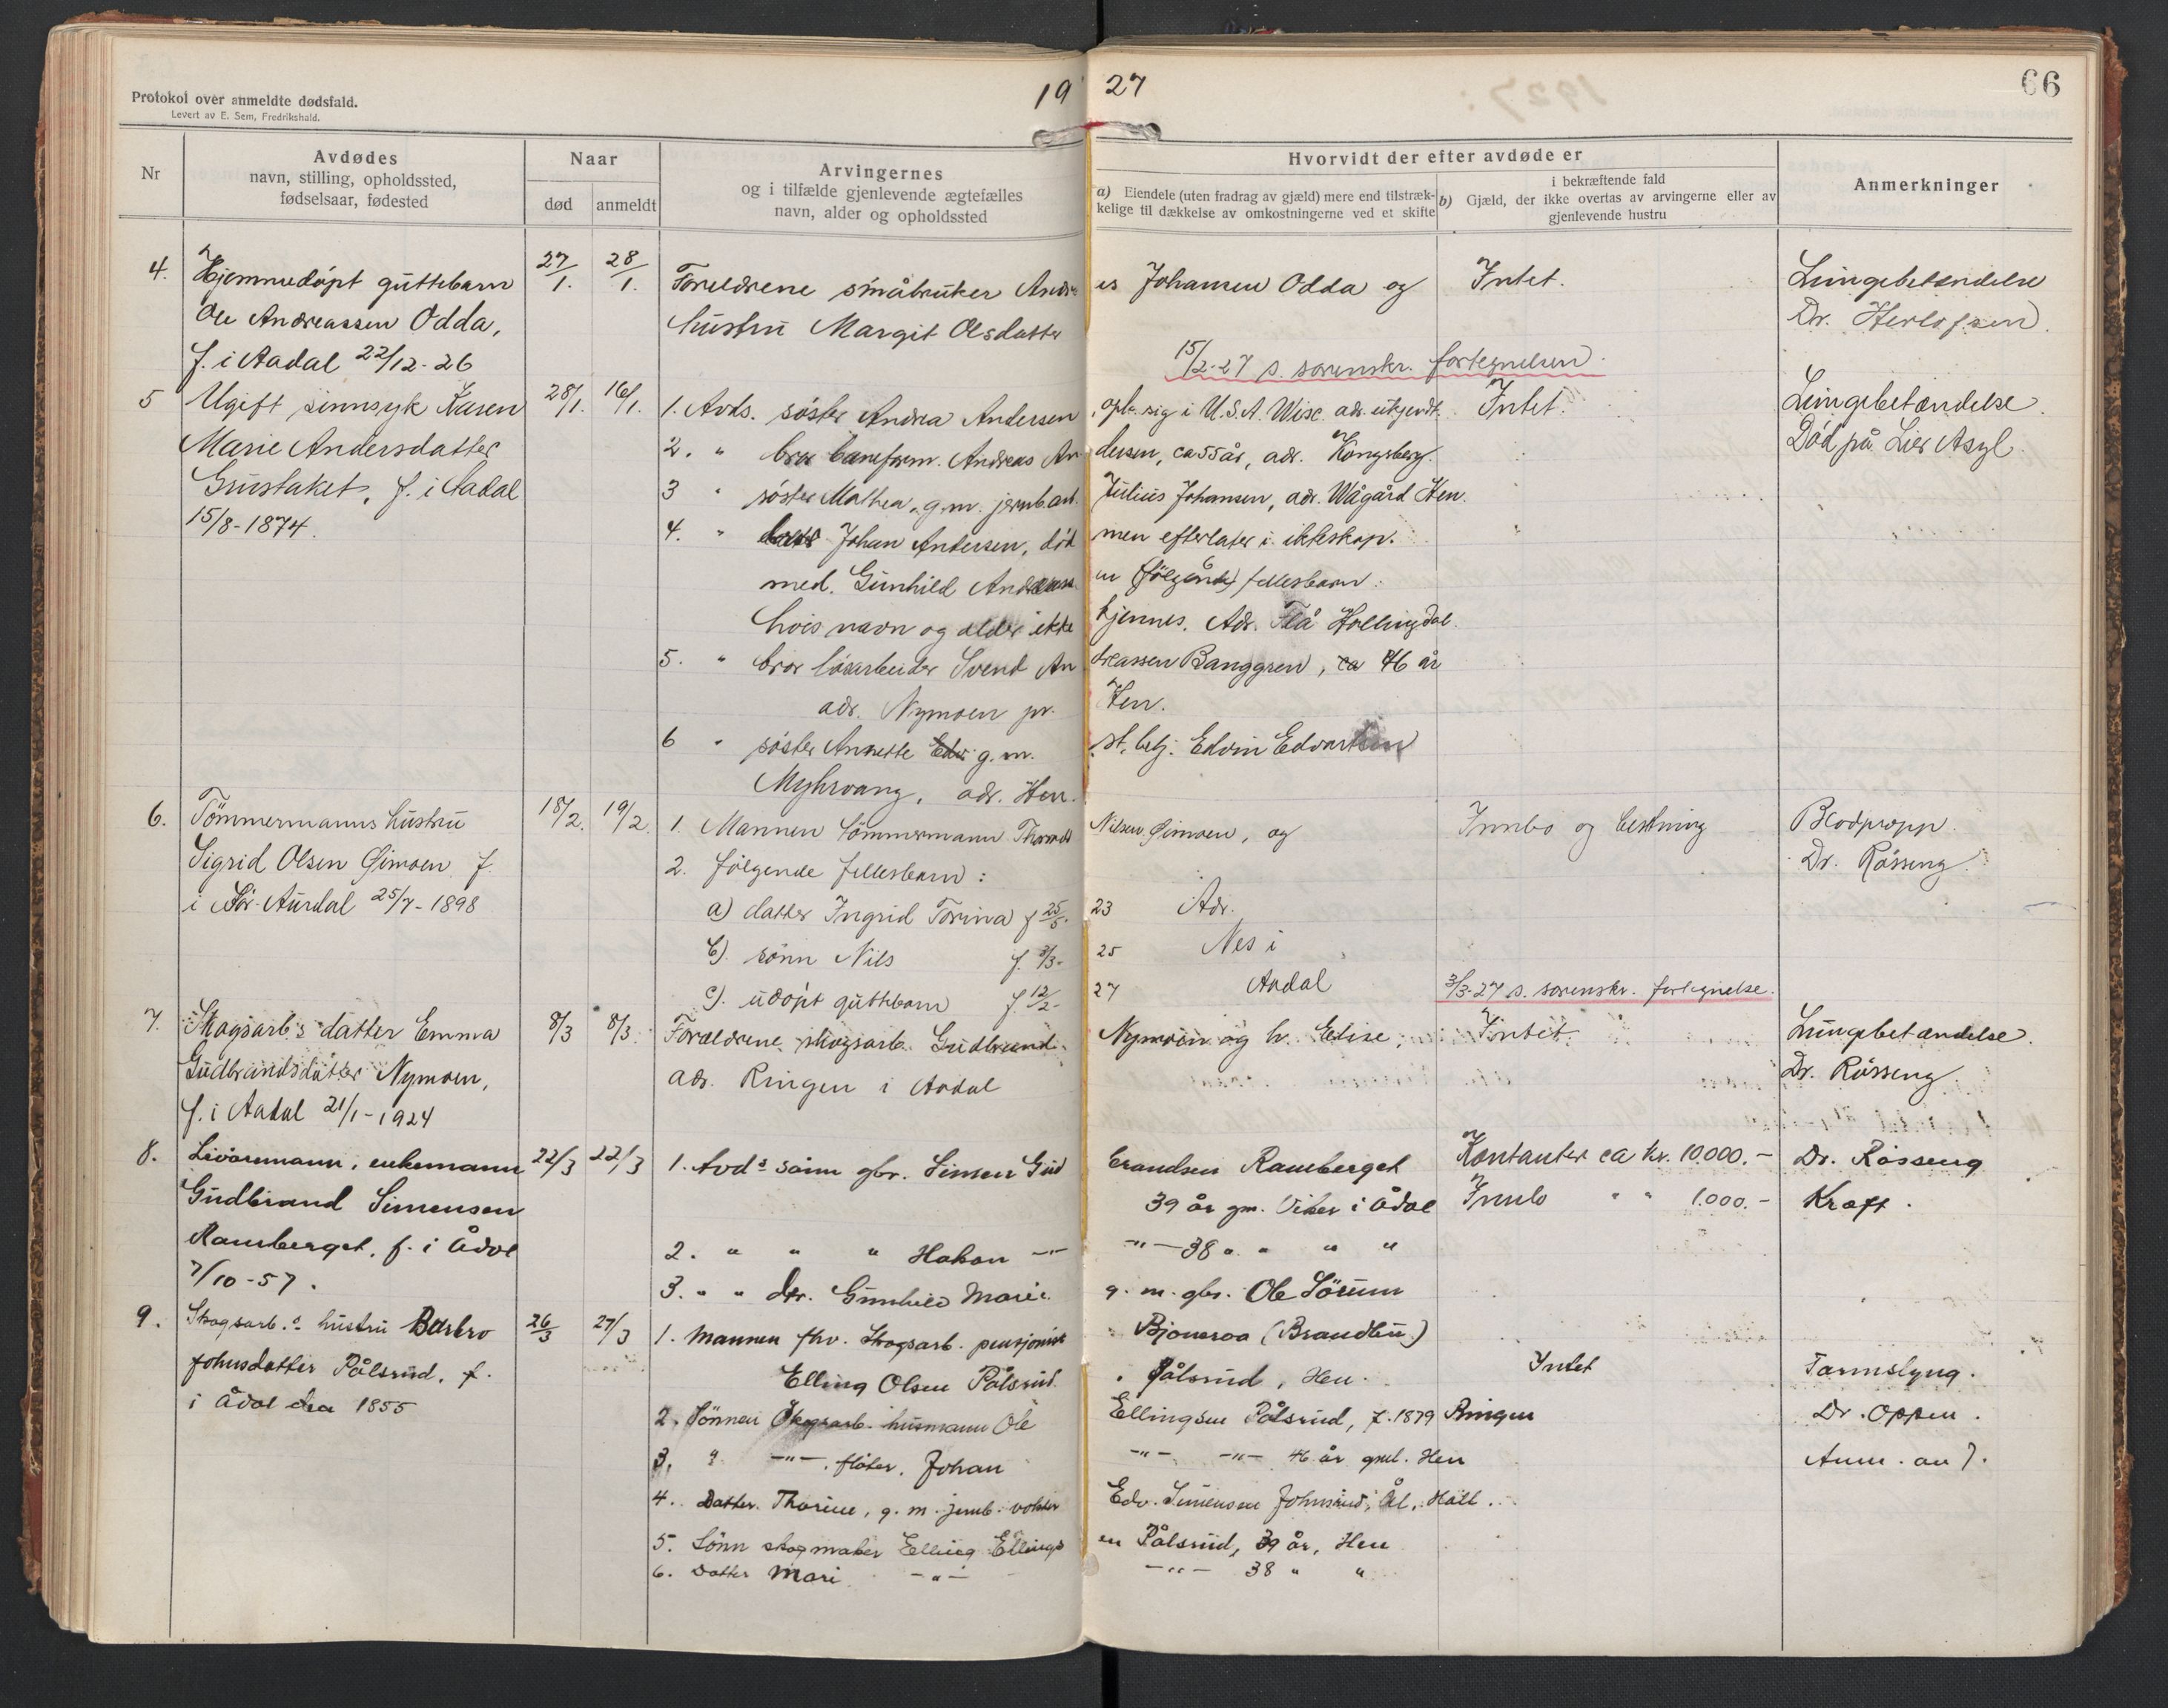 Protokol over anmeldte dødsfald.
Levert av E. Sem, Fredrikshald.
1927
66
Nr
Avdødes
navn, stilling, opholdssted,
fødselsaar, fødested
Naar
død
anmeldt
Arvingernes
og i tilfælde gjenlevende ægtefælles
navn, alder og opholdssted
Hvorvidt der efter avdøde er
a) Eiendele (uten fradrag av gjæld) mere end tilstræk-
kelige til dækkelse av omkostningerne ved et skifte
i bekræftende fald
b) Gjæld, der ikke overtas av arvingerne eller av
gjenlevende hustru
Anmerkninger
4. Hjemmedøpt guttebarn 27/1. 28/1. Foreldrene småbruker Andreas Johansen Odda og Intet. Lungebetændelse
Ole Andreassen Odda, hustru Margit Olsdatter Dr. Herlofsen.
f. i Aadal 22/12-26
15/2-27 s. sorenskr. fortegnelsen.
5 Ugift sinnsyk Karen 28/1. 16/1. 1. Avds. søster Andrea Andersen, oph. sig i U.S.A. Wisc. adr. ukjendt. Intet. Lungebetændelse.
Marie Andersdatter 2. " bror baneform. Andreas Andersen, ca 55 år, adr. Kongsberg. Død på Lier Asyl.
Grustaket, f. i Aadal 3 " søster Mathea, g.m. jernb.arb. Julius Johansen, adr. Wågård Hen.
15/8-1874. 4. " Johan Andersen, død men efterlater i ekteskap.
med. Gunhild følgende fellesbarn:
hvis navn og alder ikke kjennes. Adr. Flå Hallingdal.
5. " bror løsarbeider Svend Andreassen Banggren, ca 46 år
adr. Nymoen pr. Hen.
6 " søster Annette g.m. st. betj. Edvin Edvartsen
Myhrvang, adr. Hen.
6. Tömmermanns hustru 18/2. 19/2. 1. Mannen tömmermann Nilsen Øimoen, og Innbo og besetning Blodpropp.
Sigrid Olsen Øimoen f. 2. følgende fellesbarn: Dr. Røsseng.
i Sør-Aurdal 25/7-1898 a) datter Ingrid Torina f 25/5-23 Adr.
b). sønn Nils f. 3/3-25 Nes i
c). udøpt guttebarn f. 12/2-27 Aadal 3/3-27 s. sorenskr. fortegnelse.
7. Skogsarb.s datter Emma 8/3 8/3. Foreldrene skogsarb. Gudbrand Nymoen og h. Elise, Intet. Lungebetændelse.
Gudbrandsdatter Nymoen, adr. Ringen i Aadal Dr. Røsseng
f. i Aadal 21/1-1924
8. enkemann 22/3 22/3 1. Avds sønn gbr. Simen Gudbrandsen Ramberget Kontanter ca kr. 10.000.- Dr. Røsseng
Gudbrand Simensen 39 år gm. Viker i Ådal Innbo " " 1.000.- Kræft.
Ramberget, f. i Ådal 2. " " " Hakon -"- -"- 38 " " " "
7/10-57. 3. " " dtr. Gunhild Marie g. m. gbr. Ole Sörum
9. Skogsarb.s hustru Barbro 26/3 27/3 1. Mannen fhv. Skogsarb. pensjonist Bjoneroa (Brandbu)
Johnsdatter Pålsrud, f. Elling Olsen Pålsrud. Pålsrud, Hen. Intet Tarmslyng.
i Ådal 1855 2. Sönnen Skogsarb. husmann Ole Ellingsen Pålsrud, f. 1879 Ringen Dr. Oppen.
3. " -"-, fløter, Johan -"- -"- 46 år Hen
4. Datter. Thorine, g. m. jernb. vokter Edv. Simensen Johnsrud, Ål, Hall.
5. Sönn skogmaker Elling Ellingsen Pålsrud, 39 år, Hen
6. Datter Mari -"- -"- 38 " "